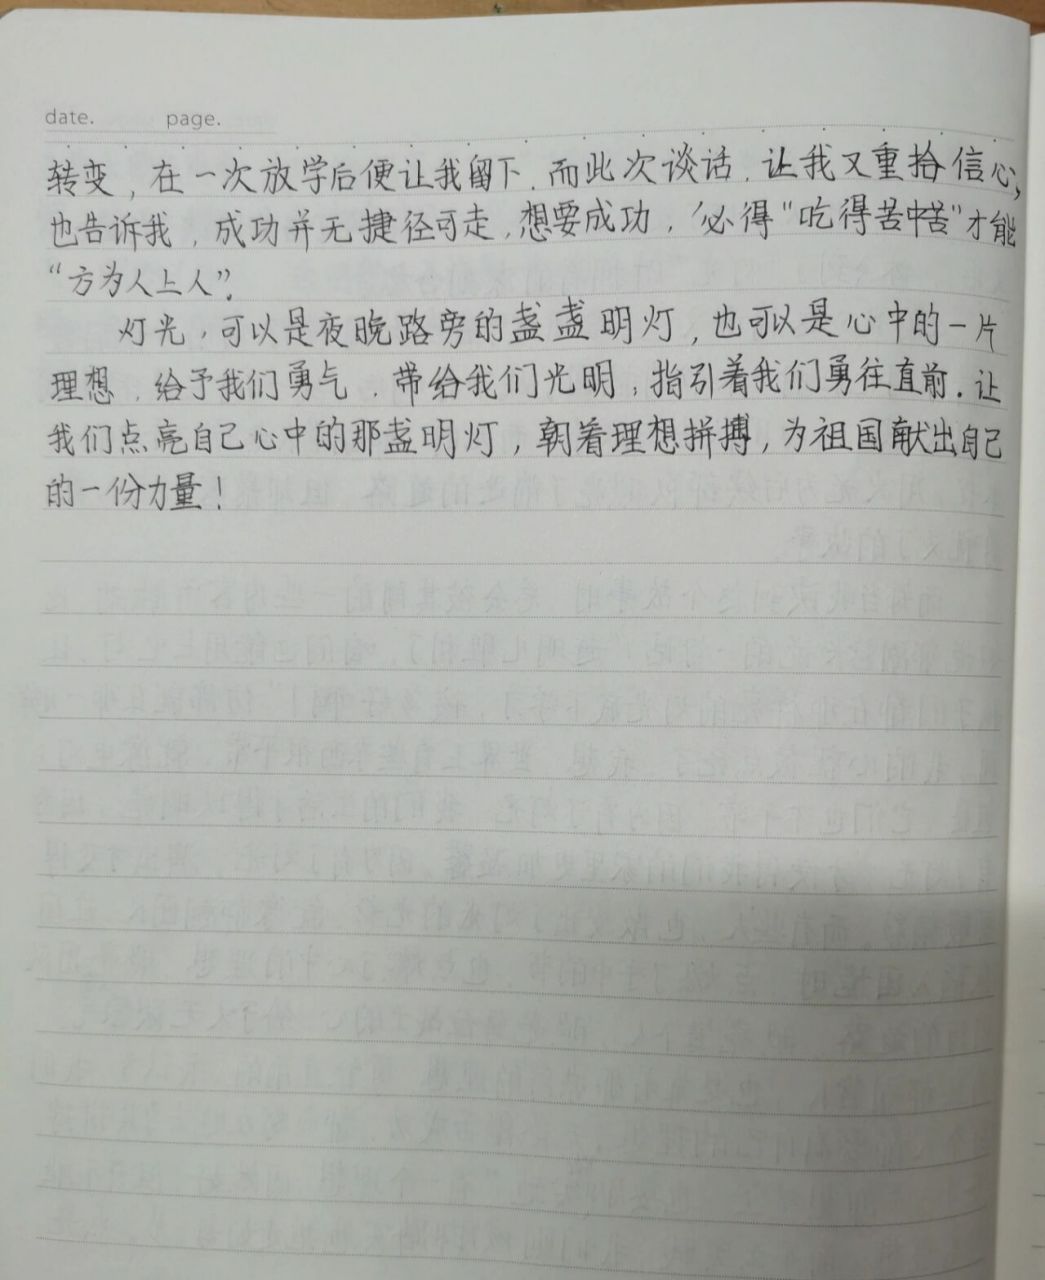 date. page.
转变，在一次放学后便让我留下.而此次谈话.让我又重拾信心,
也告诉我，成功并无捷径可走.想要成功，必得"吃得苦中苦"才能
"方为人上人".
灯光，可以是夜晚路旁的盏盏明灯，也可以是心中的一片
理想.给予我们勇气.带给我们光明，指引着我们勇往直前.让
我们点亮自己心中的那盏明灯，朝着理想拼搏，为祖国献出自己
的一份力量！